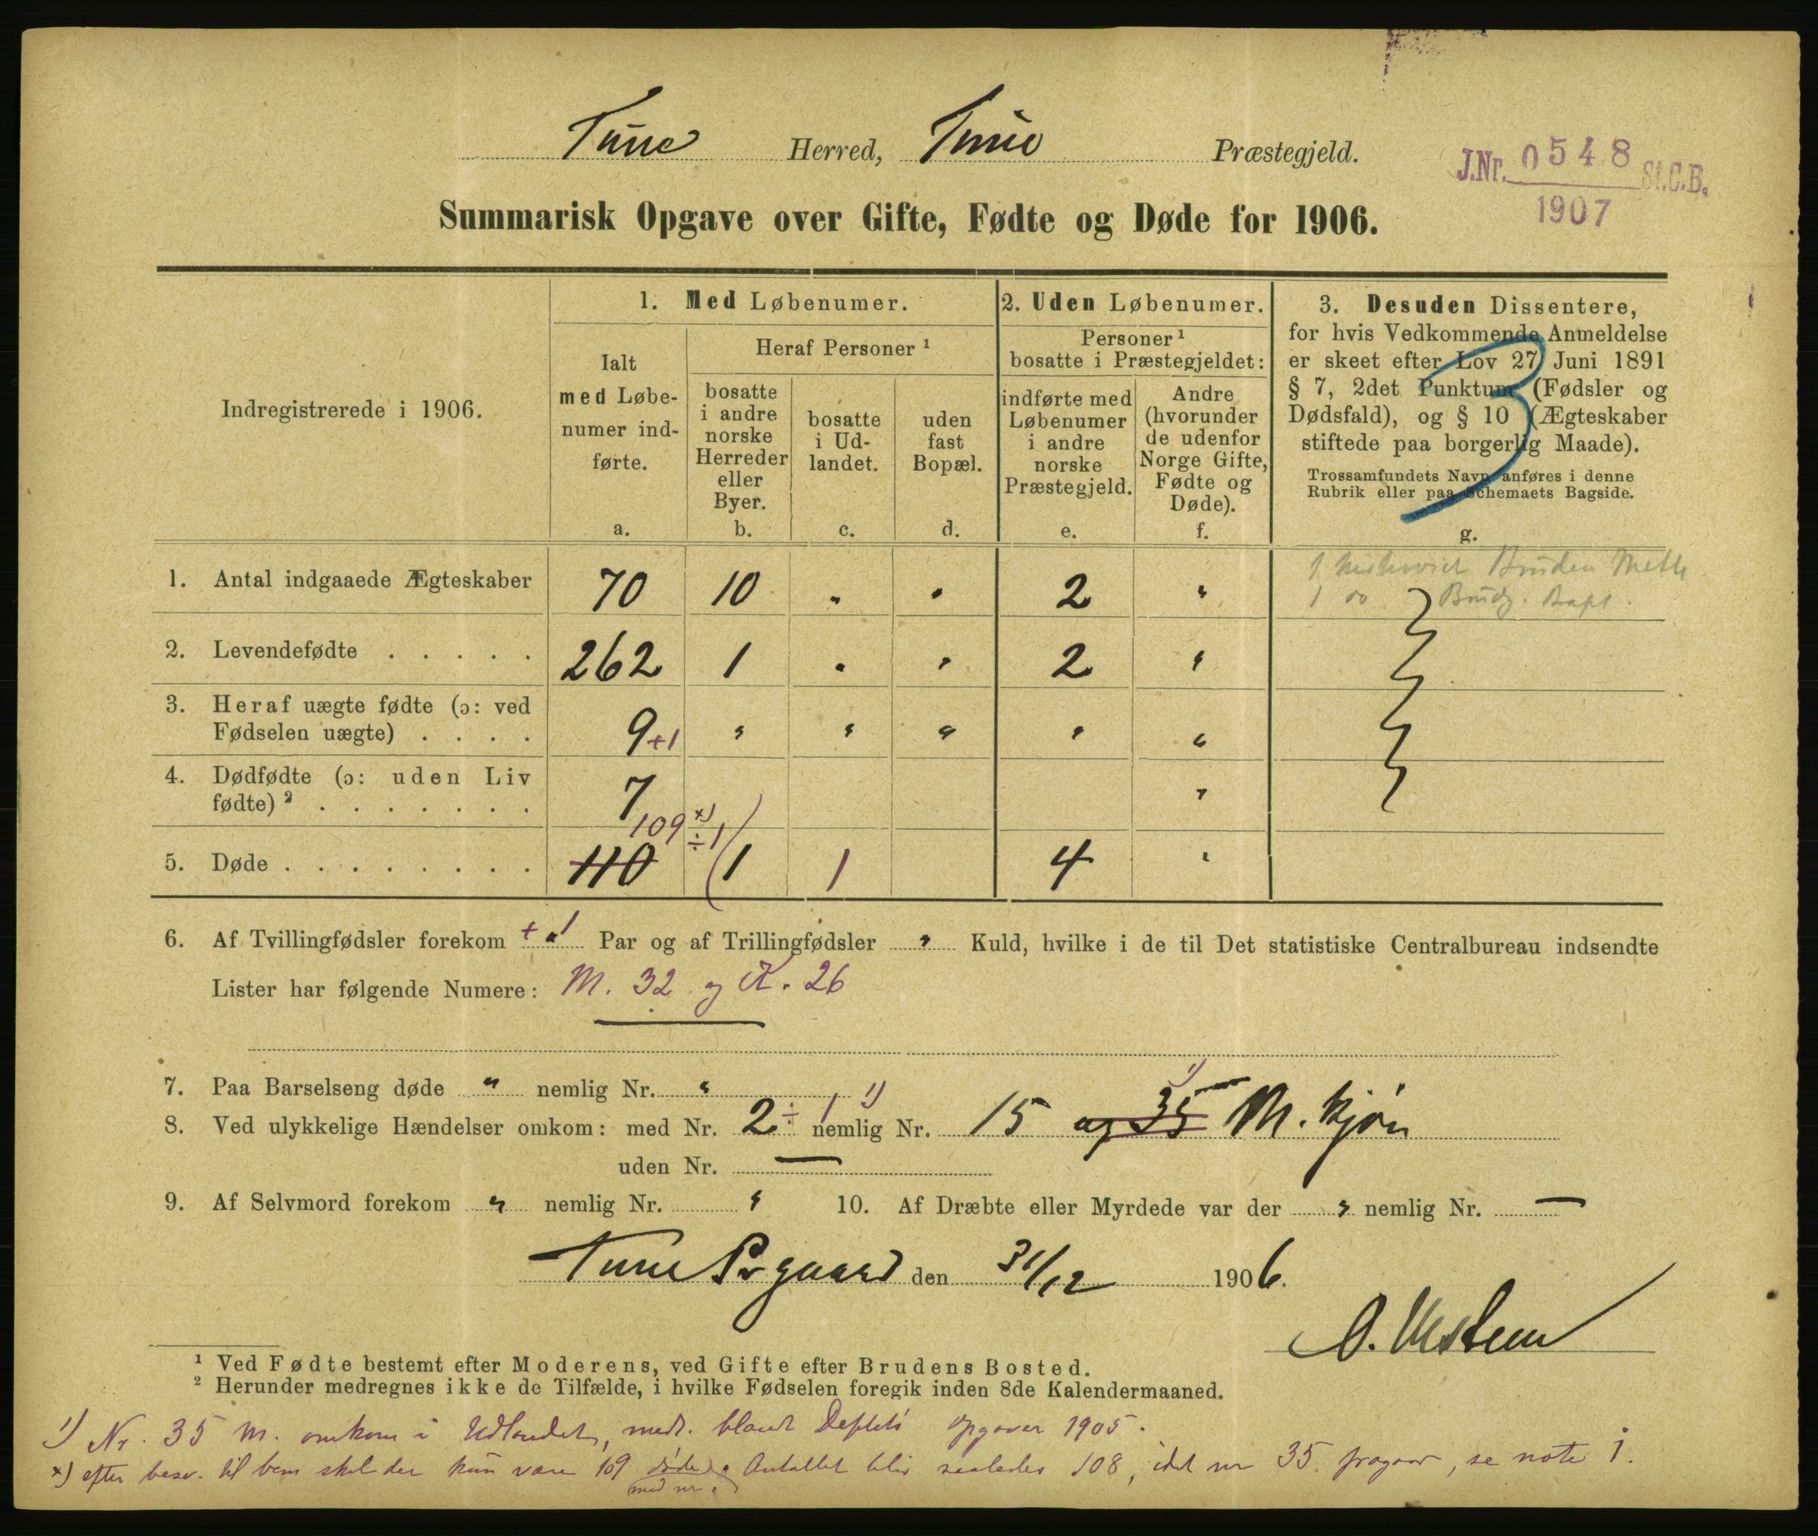 Tune Herred, Tune Præstegjeld.
J.Nr. 0548 St.C.B.
1907
Summarisk Opgave over Gifte, Fødte og Døde for 1906.
Indregistrerede i 1906.
1. Med Løbenumer.
Ialt med Løbe-numer ind-førte.
a.
Heraf Personer ¹
bosatte i andre norske Herreder eller Byer.
b.
bosatte i Ud-landet.
c.
uden fast Bopæl.
d.
2. Uden Løbenumer.
Personer ¹ bosatte i Præstegjeldet:
indførte med Løbenumer i andre norske Præstegjeld.
e.
Andre (hvorunder de udenfor Norge Gifte, Fødte og Døde).
f.
3. Desuden Dissentere,
for hvis Vedkommende Anmeldelse
er skeet efter Lov 27 Juni 1891
§ 7, 2det Punktum (Fødsler og
Dødsfald), og § 10 (Ægteskaber
stiftede paa borgerlig Maade).
Trossamfundets Navn anføres i denne
Rubrik eller paa Schemaets Bagside.
g.
3
1. Antal indgaaede Ægteskaber 70 10 " " 2 " 1 Bruden Meth
1 do Brudg. Bapt.
2. Levendefødte . . . . . 262 1 " " 2 "
3. Heraf uægte fødte (ɔ: ved
Fødselen uægte) . . . . 9 +1 " " " " "
4. Dødfødte (ɔ: uden Liv
fødte) ² . . . . . . . 7 "
109 ×) ÷1
5. Døde . . . . . . . . 110 1 1 4 "
6. Af Tvillingfødsler forekom + " 1 Par og af Trillingfødsler " Kuld, hvilke i de til Det statistiske Centralbureau indsendte
Lister har følgende Numere: M. 32 og K. 26
7. Paa Barselseng døde " nemlig Nr. "
8. Ved ulykkelige Hændelser omkom: med Nr. 2 ÷ 1 ¹) nemlig Nr. 15 og 35 ¹) M. kjøn
uden Nr. —
9. Af Selvmord forekom " nemlig Nr. " 10. Af Dræbte eller Myrdede var der " nemlig Nr. —
Tune Prgaard den 31/12 1906.
O. Vestern
¹ Ved Fødte bestemt efter Moderens, ved Gifte efter Brudens Bosted.
² Herunder medregnes ikke de Tilfælde, i hvilke Fødselen foregik inden 8de Kalendermaaned.
¹) Nr. 35 M. omkom i Udlandet, medt. blandt opgaver 1905.
×) efter besv. til bem skal der kun være 109 døde med nr. Antallet blir saaledes 108, idet nr 35 fragaar, se note 1.